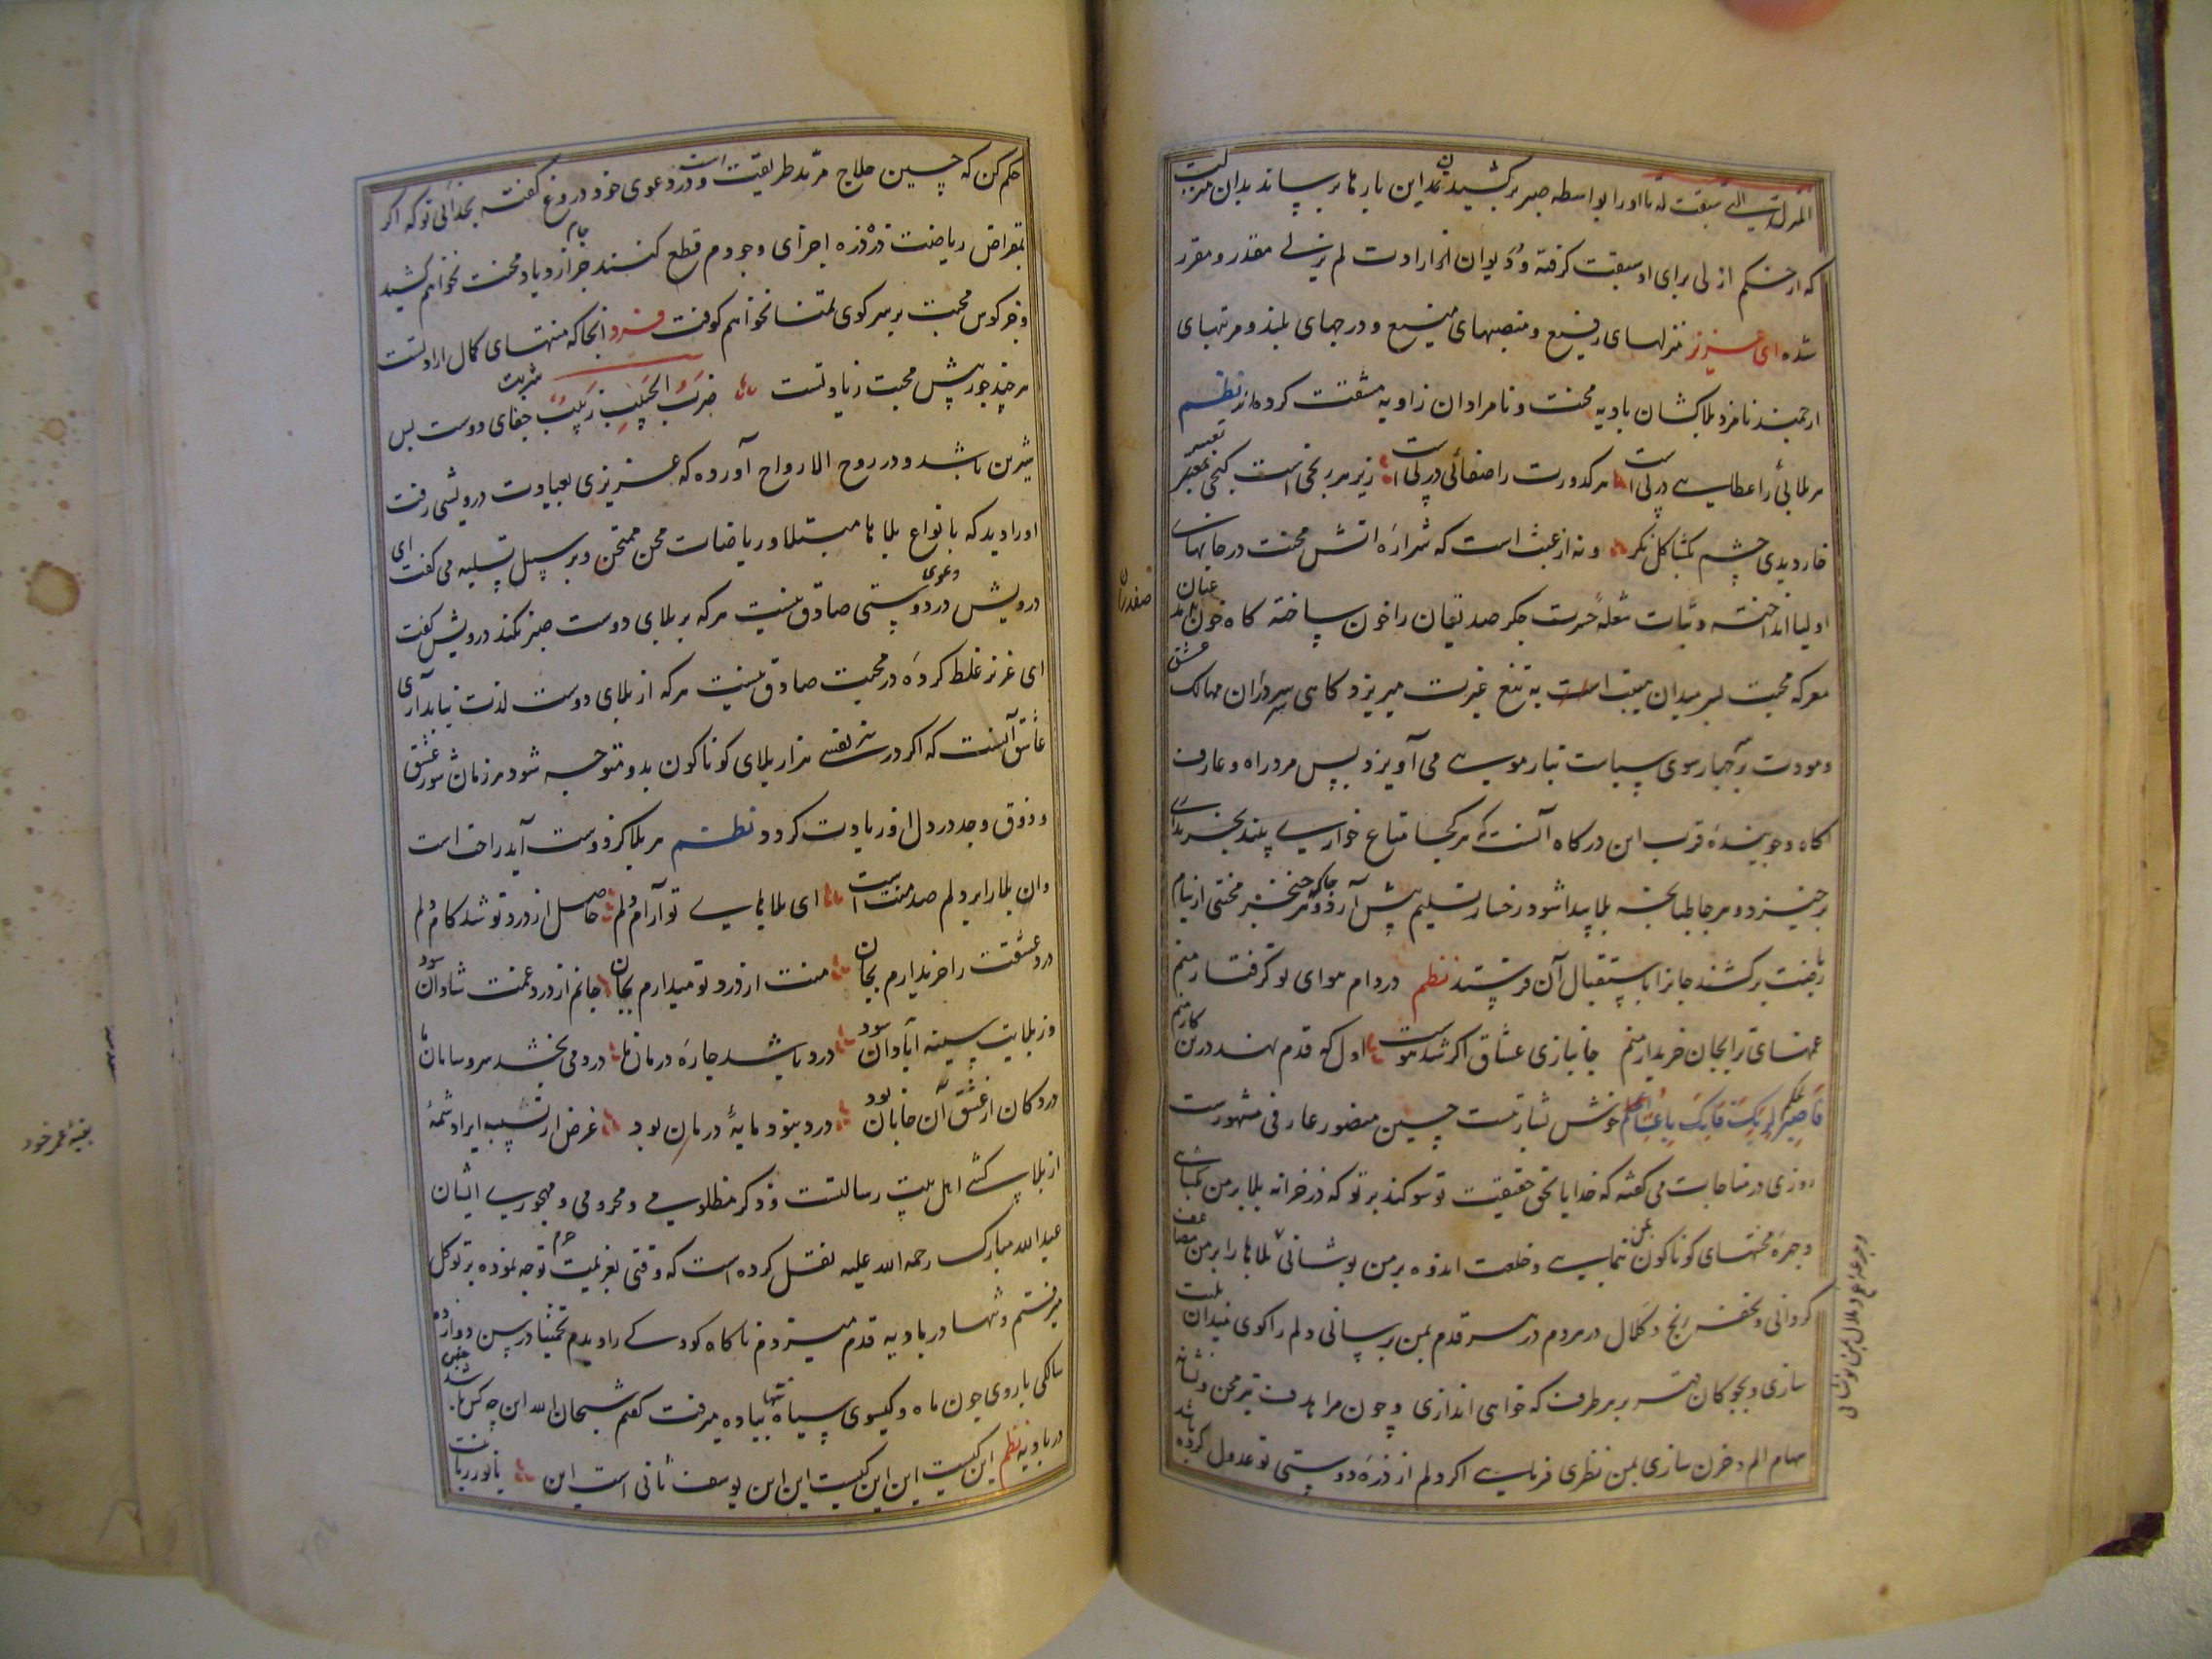 که از حکم ازلی برای او سبقت گرفته و در دیوان ارادت لم یزلی مقدر و مقرر
شده ای عزیز منزلهای رفیع و منصبهای منیع و درجهای بلند و مرتبهای
ارجمند نامزد بلاکشان بادیه محنت و نامرادان زاویه مشقت کرده‌اند نظم
هر بلائی را عطایی در پی است هر کدورت را صفائی در پی است زیر هر رنجی است گنجی معتبر
خار دیدی چشم بگشا گل نگر و نه از عبث است که شرارهٔ اتش محنت در جانهای
اولیا انداخته و بتاب شعلهٔ حسرت جگر صدیقان را خون ساخته گاه خون
معرکه محبت بر میدان هیبت به تیغ غیرت میریزد و گاهی سر سروران ممالک عشق
و مودت بر چهارسوی سیاست بتار مویی می آویزد پس مرد راه و عارف
اگاه و جویندهٔ قرب این درگاه آنست که هر کجا متاع خواری بیند بخریداری
برخیزد و هر جا طپانچه بلا پیدا شود رخسار تسلیم پیش آرد و هر جا که خنجر محنتی از نیام
برکشند جانرا باستقبال آن فرستد نظم در دام هوای تو گرفتار منم
غمهای ترا بجان خریدار منم جانبازی عشاق اگر شد هوست اول که قدم نهد درین کار منم
فاصبر لحکم ربک فانک باعیننا حسین منصور عارفی مشهورست
روزی در مناجات می گفته که خدایا بحق حقیقت تو سوگند بر تو که در خزانه بلا بر من بگشای
و چهرهٔ محنتهای گوناگون بمن نمایی و خلعت اندوه بر من پوشانی بلاها را بر من مضاعف
گردانی و رنج و کلال در هر دم در هر قدم بمن رسانی و دلم را گوی میدان بلیت
سازی و بچوگان قهر بر هر طرف که خواهی اندازی و چون مرا هدف تیر محن و نشانه
سهام الم و حزن سازی بمن نظری فرمایی اگر دلم از ذرهٔ دوستی تو عدول کرده باشد
حکم کن که حسین حلاج مرتد طریقت است و در دعوی خود دروغ گفته بخدائی تو که اگر
بمقراض ریاضت ذره ذره اجزای وجودم قطع کنند جز از دیاد محنت جام نخواهم کشید
و جز کوس محبت بر سر کوی تمنا نخواهم کوفت فرد انجا که منتهای کمال ارادتست
هر چند جور بیش محبت زیادتست ضرب الحبیب زبیب شربت جفای دوست بس
شیرین باشد و در روح الارواح آورده که عزیزی بعیادت درویشی رفت
او را دید که بانواع بلاها مبتلا و ریاضات محن ممتحن و بر سبیل تسلیه می گفت ای
درویش در دعوی دوستی صادق نیست هر که بر بلای دوست صبر نکند درویش گفت
ای عزیز غلط کردهٔ در محبت صادق نیست هر که از بلای دوست لذت نیابد آری
عاشق آنست که اگر در هر نفسی هزار بلای گوناگون بدو متوجه شود هر زمان شور عشق
و ذوق و وجد در دل او زیادت گردد نظم هر بلا کز دوست آید راحت است
وان بلا را بر دلم صد منت است ای بلاهایی تو آرام دلم حاصل از درد تو شد کام دلم
درد عشقت را خریدارم بجان منت از درد تو میدارم بجان جانم از درد غمت شادان بود
وز بلایت سینه آبادان بود درد باشد چارهٔ درمان ما درد می بخشد سر و سامان ما
درد کان از عشق آن جانان بود درد نبود مایهٔ درمان بود غرض از تشبیه ایراد شمهٔ
از بلا کشی اهل بیت رسالتست و ذکر مظلومی و محرومی و مهجوری ایشان
عبدالله مبارک رحمه الله علیه نقل کرده است که وقتی بعزیمت حرم توجه نموده بر توکل
میرفتم و تنها در بادیه قدم میزدم ناگاه کودکی را دیدم تخمینا در سن دوازده
سالگی با روی چون ماه و گیسوی سیاه تنها پیاده میرفت گفتم سبحان الله این چه کس باشد
در بادیه نظم این کیست این این کیست این این یوسف ثانی است این یا نور ربانیست
بقیهٔ عمر خود